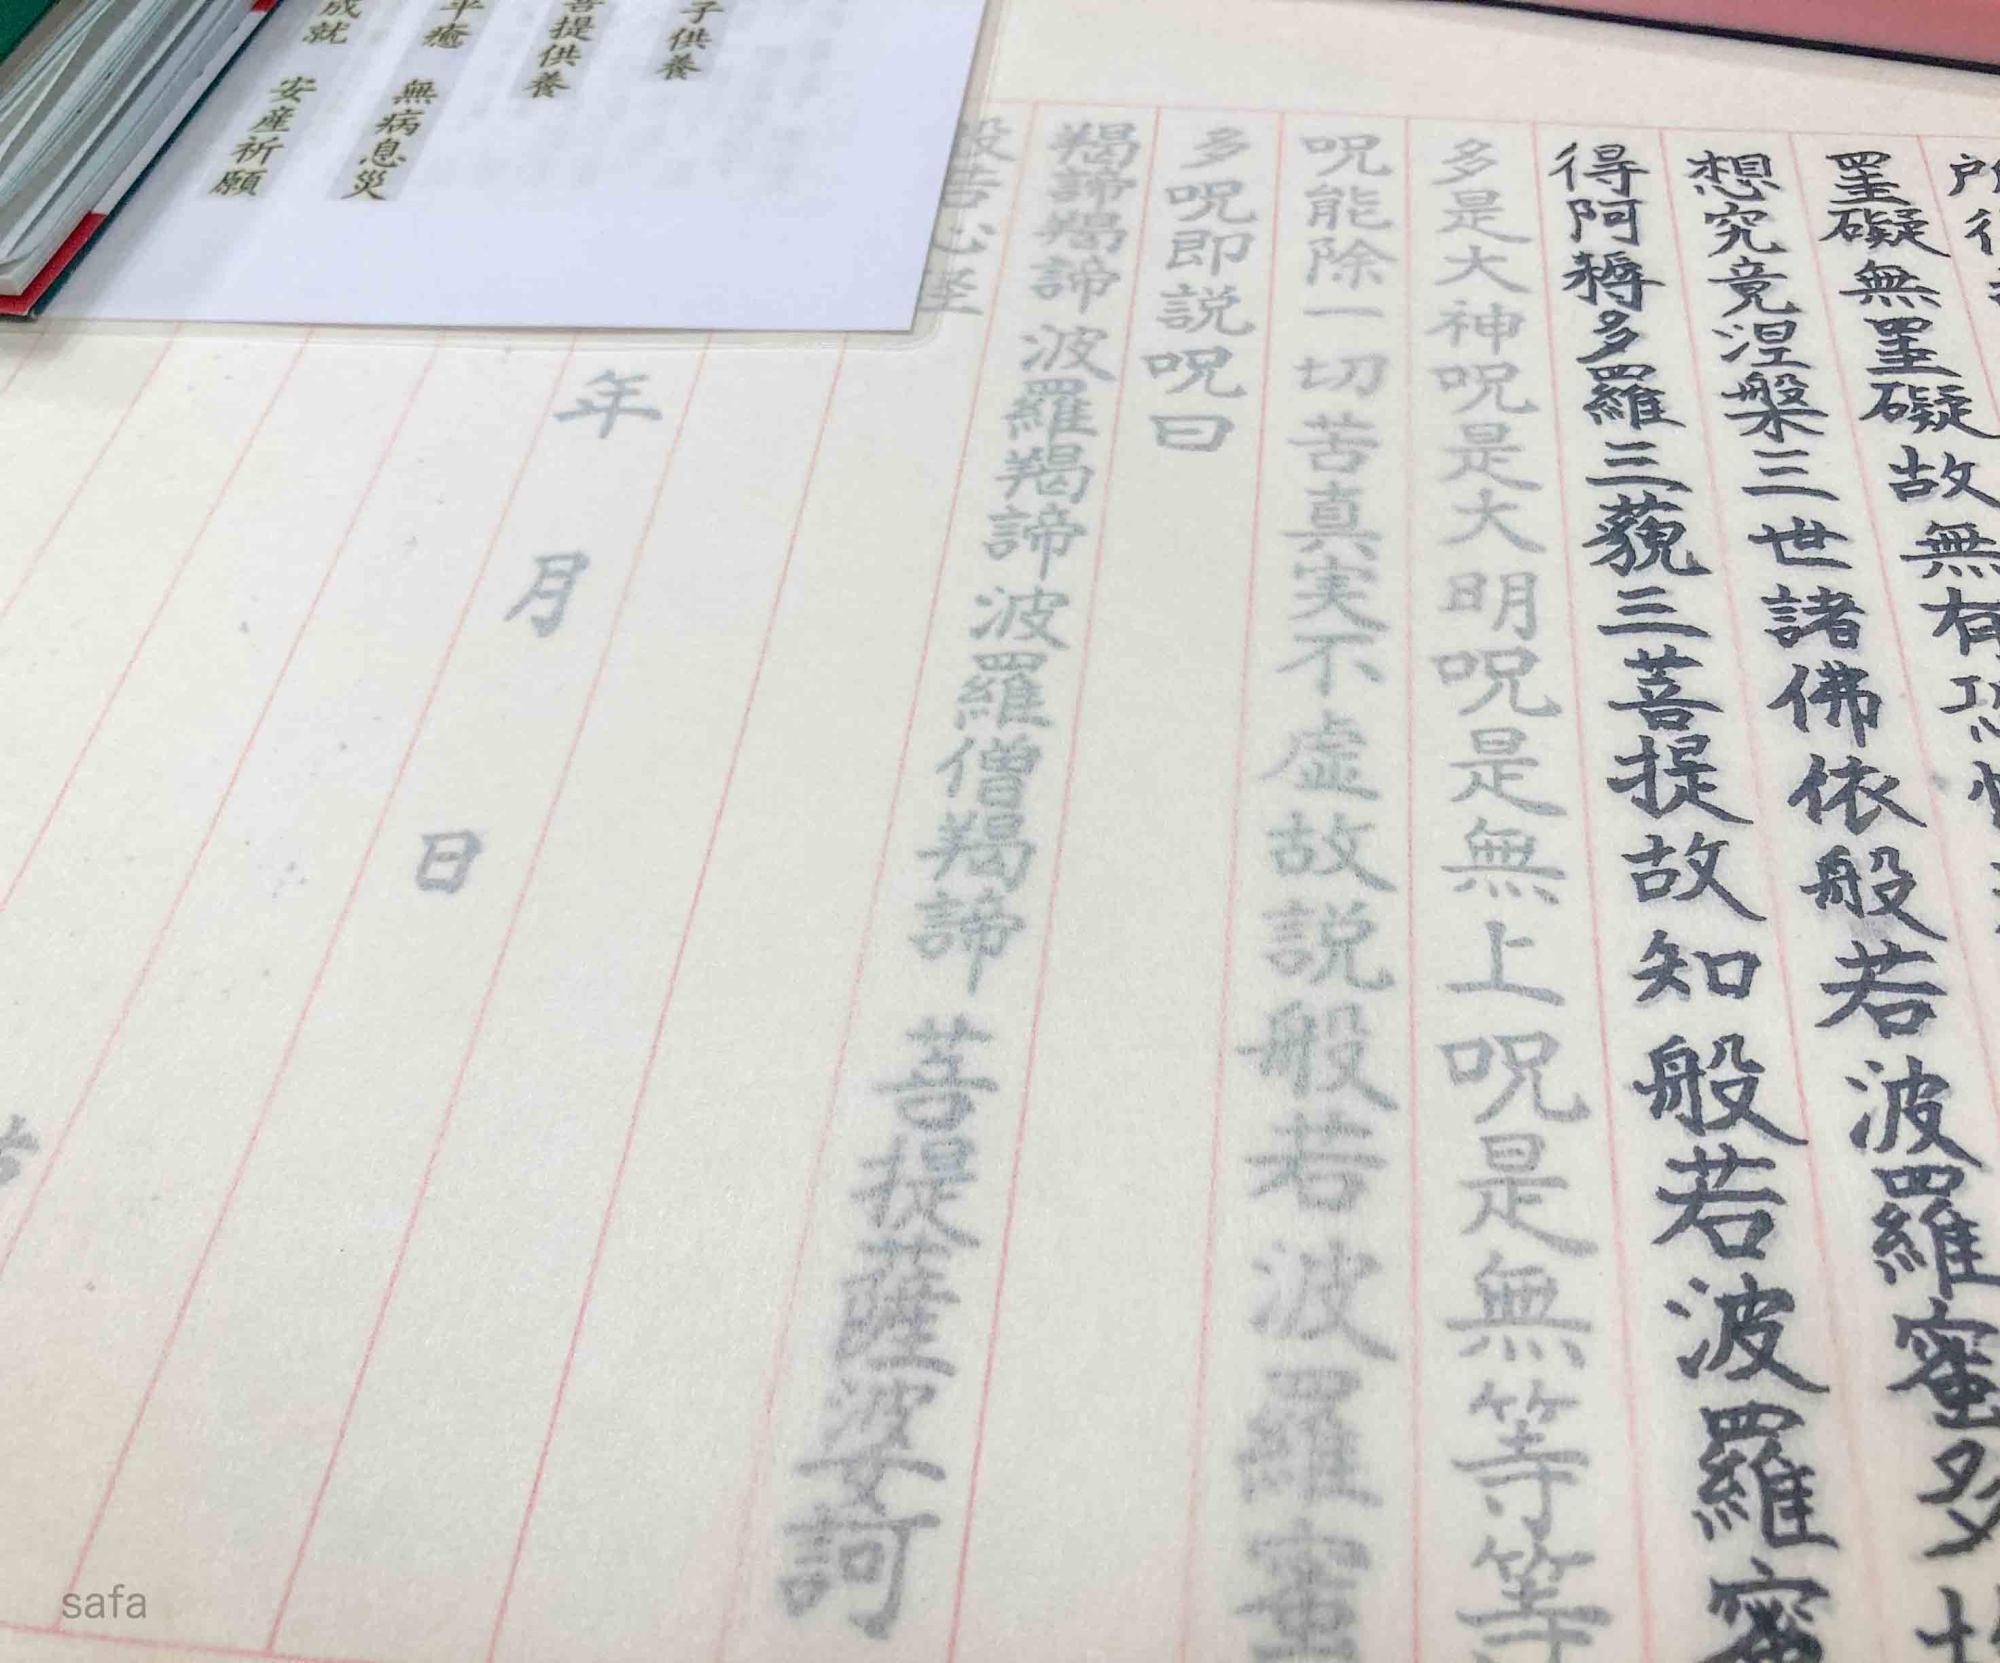 罣礙無罣礙故無有恐
想究竟涅槃三世諸佛依般若波羅蜜多故
得阿耨多羅三藐三菩提故知般若波羅蜜
多是大神呪是大明呪是無上呪是無等等
呪能除一切苦真実不虚故説般若波羅蜜
多呪即説呪曰
羯諦羯諦 波羅羯諦 波羅僧羯諦 菩提薩婆訶
般若心経
年 月 日
子供養
菩提供養
平癒 無病息災
成就 安産祈願
safa